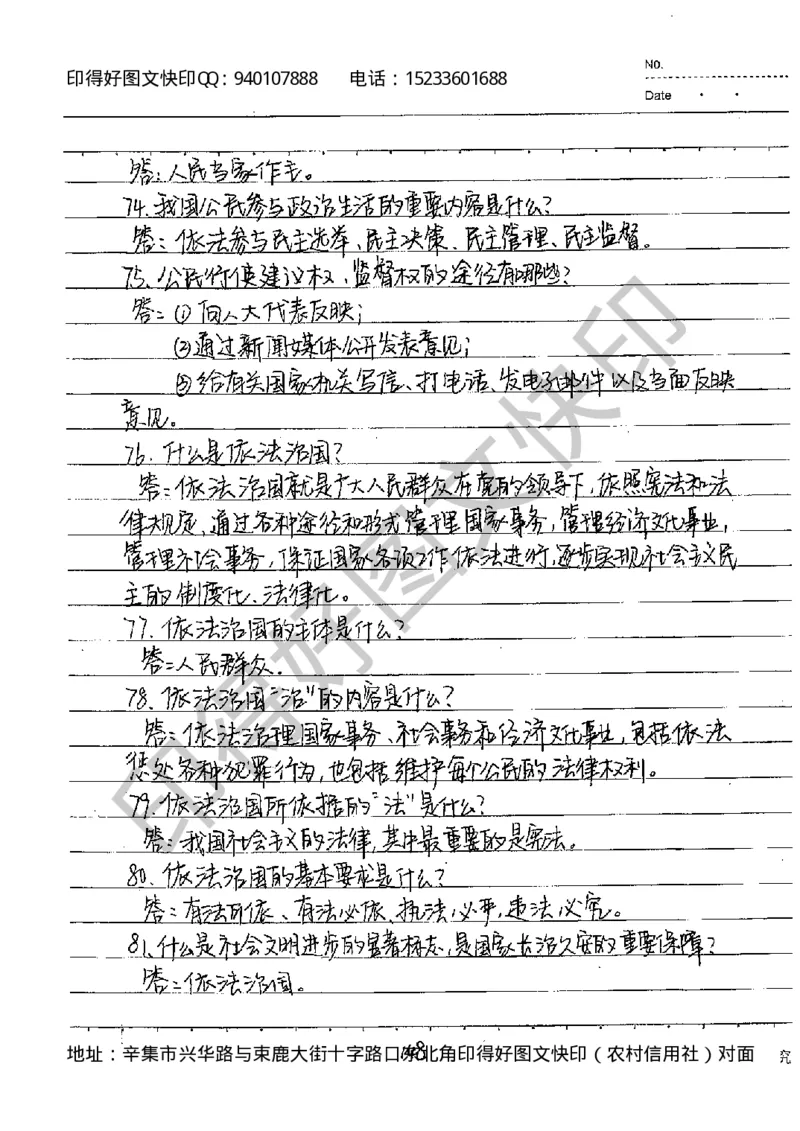 No.
印得好图文快印QQ：940107888 电话：15233601688
Date
答：人民当家作主。
74.我国公民参与政治生活的重要内容是什么？
答：依法参与民主选举、民主决策、民主管理、民主监督。
75.公民行使建议权、监督权的途径有哪些？
答：①向人大代表反映；
②通过新闻媒体公开发表意见；
③给有关国家机关写信、打电话、发电子邮件以及当面反映
意见。
76.什么是依法治国？
答：依法治国就是广大人民群众在党的领导下，依照宪法和法
律规定，通过各种途径和形式管理国家事务，管理经济文化事业，
管理社会事务，保证国家各项工作依法进行，逐步实现社会主义民
主的制度化、法律化。
77.依法治国的主体是什么？
答：人民群众.
78.依法治国“治”的内容是什么？
答：依法治理国家事务、社会事务和经济文化事业，包括依法
惩处各种犯罪行为，也包括维护每个公民的法律权利。
79.依法治国所依据的“法”是什么？
答：我国社会主义的法律，其中最重要的是宪法。
80.依法治国的基本要求是什么？
答：有法可依、有法必依、执法必严，违法必究。
81.什么是社会文明进步的显著标志，是国家长治久安的重要保障？
答：依法治国。
地址：辛集市兴华路与束鹿大街十字路口东北角印得好图文快印（农村信用社）对面
究
印得好图文快印